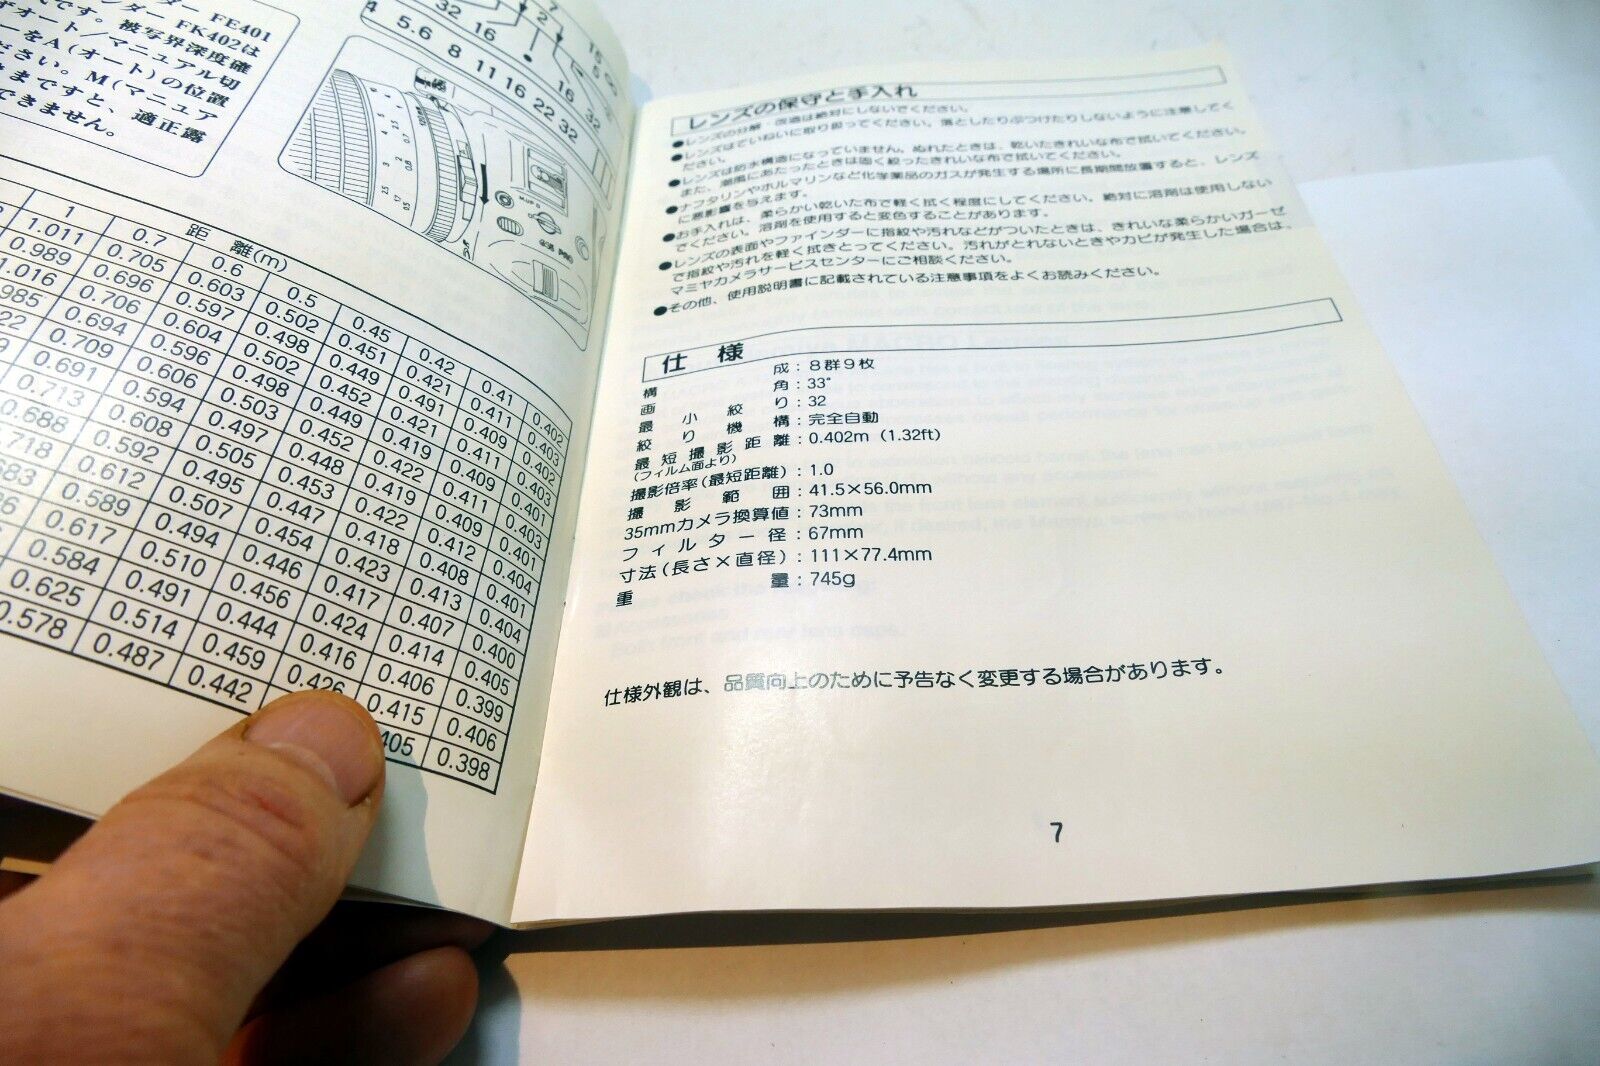 ダー FE401
ンダー FK402は
です。被写界深度確
ずオート／マニュアル切
ーをA（オート）の位置
ださい。M（マニュア
きますと、適正露
できません。
7
32 16 2 16
4 5.6 8 11 16 22 32
16 32
M.UP
645 PRO
距 離(m)
1 0.7 0.6 0.5 0.45 0.42 0.41 0.402
1.011 0.705 0.603 0.502 0.451 0.421 0.411 0.403
0.989 0.696 0.597 0.498 0.449 0.491 0.409 0.402
1.016 0.706 0.604 0.502 0.452 0.421 0.411 0.403
0.694 0.596 0.498 0.449 0.419 0.409 0.401
0.709 0.606 0.503 0.452 0.422 0.411 0.403
0.691 0.594 0.497 0.448 0.419 0.409 0.401
0.713 0.608 0.505 0.453 0.422 0.412 0.404
0.688 0.592 0.495 0.447 0.418 0.408 0.401
0.612 0.507 0.454 0.423 0.413 0.404
0.589 0.494 0.446 0.417 0.407 0.400
0.617 0.510 0.456 0.424 0.414 0.405
0.584 0.491 0.444 0.416 0.406 0.399
0.625 0.514 0.459 0.426 0.415 0.406
0.578 0.487 0.442 0.398
レンズの保守と手入れ
●レンズの分解・改造は絶対にしないでください。
●レンズはていねいに取り扱ってください。落としたりぶつけたりしないように注意してく
ださい。
●レンズは防水構造になっていません。ぬれたときは、乾いたきれいな布で拭いてください。
また、潮風にあたったときは固く絞ったきれいな布で拭いてください。
●ナフタリンやホルマリンなど化学薬品のガスが発生する場所に長期間放置すると、レンズ
に悪影響を与えます。
●お手入れは、柔らかい乾いた布で軽く拭く程度にしてください。絶対に溶剤は使用しない
でください。溶剤を使用すると変色することがあります。
●レンズの表面やファインダーに指紋や汚れなどがついたときは、きれいな柔らかいガーゼ
で指紋や汚れを軽く拭きとってください。汚れがとれないときやカビが発生した場合は、
マミヤカメラサービスセンターにご相談ください。
●その他、使用説明書に記載されている注意事項をよくお読みください。
仕 様
構 成：8群9枚
画 角：33°
最 小 絞 り：32
絞 り 機 構：完全自動
最 短 撮 影 距 離：0.402m（1.32ft）
(フィルム面より)
撮影倍率(最短距離)：1.0
撮 影 範 囲：41.5×56.0mm
35mmカメラ換算値：73mm
フ ィ ル タ ー 径：67mm
寸法(長さ×直径)：111×77.4mm
重 量：745g
仕様外観は、品質向上のために予告なく変更する場合があります。
7